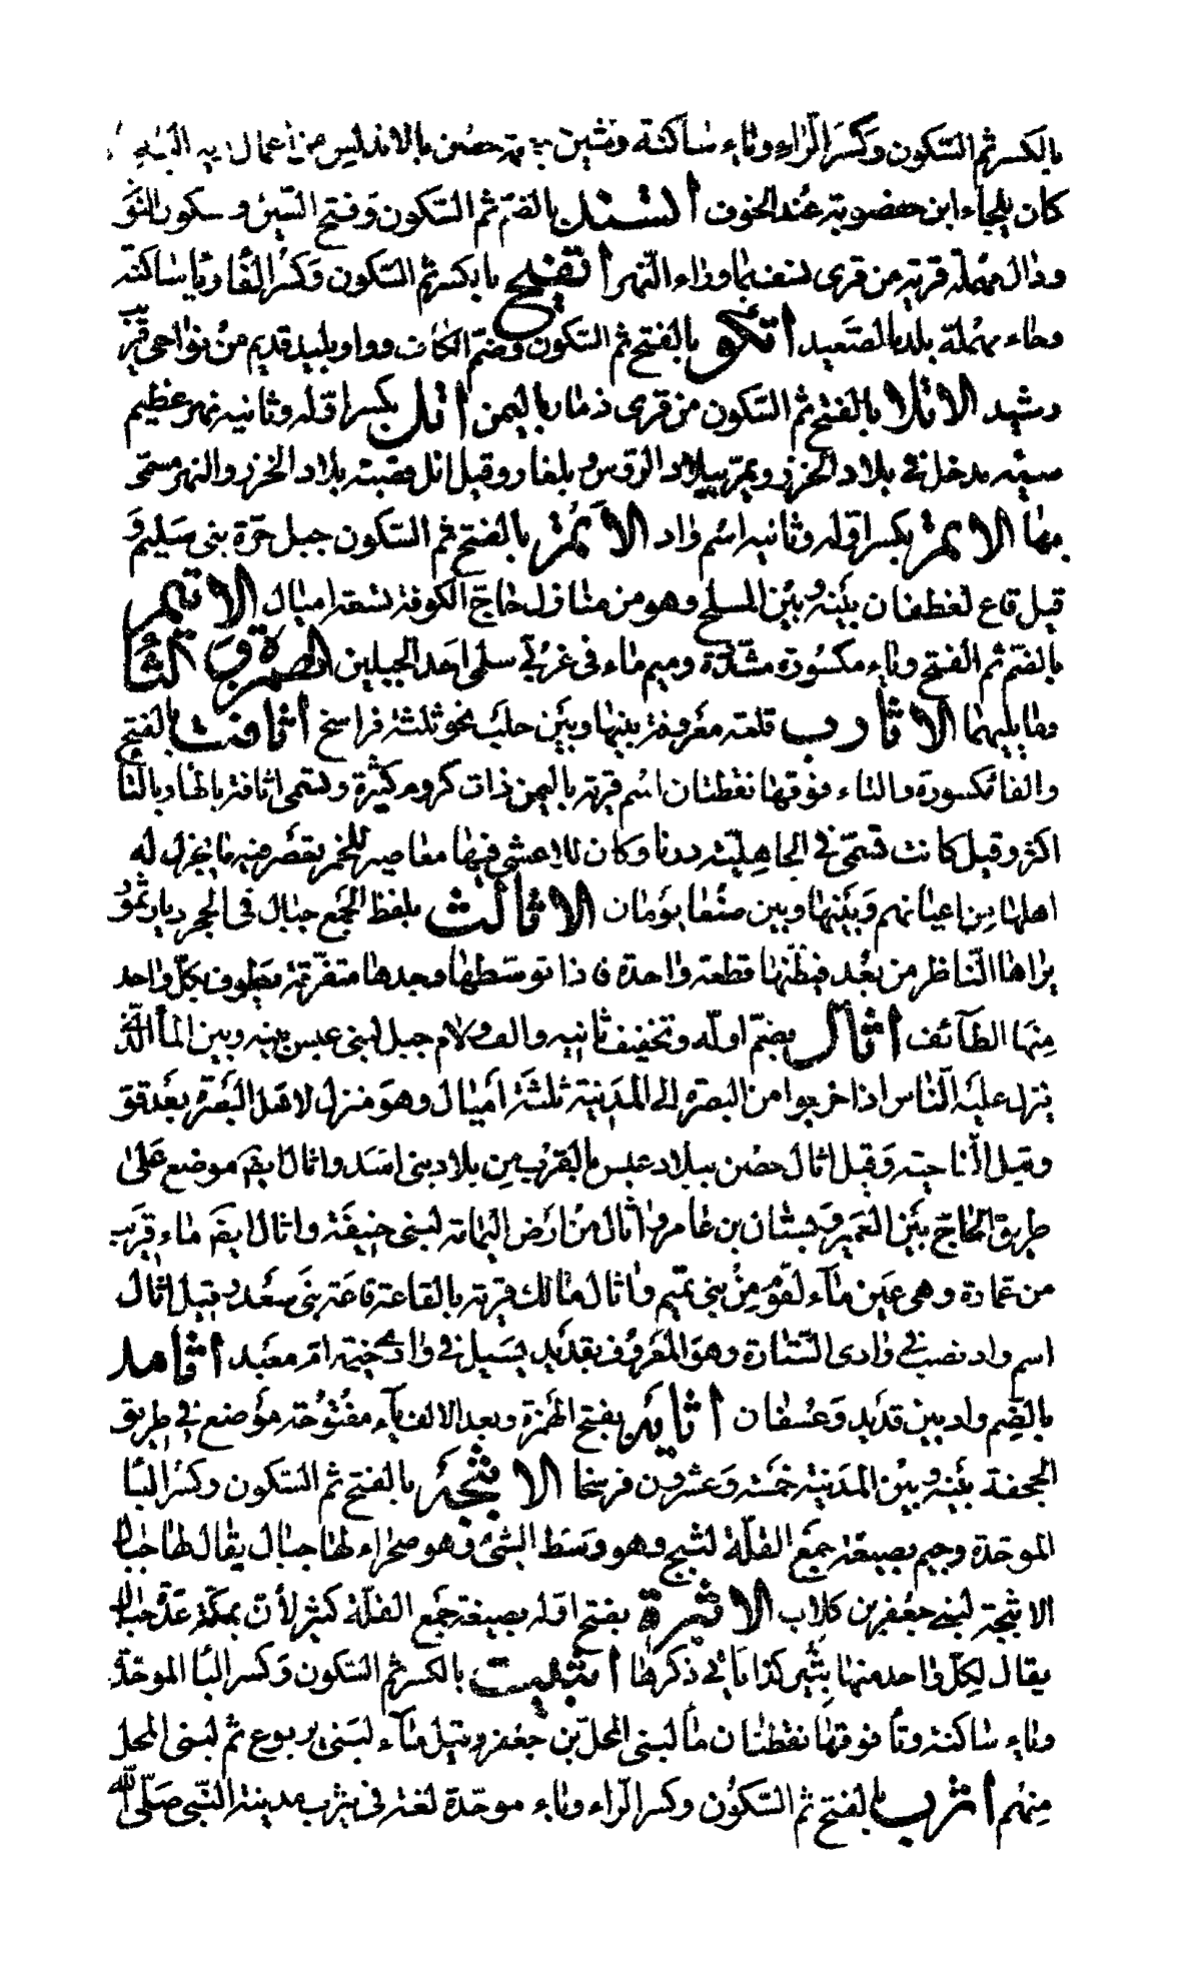 بالكسر ثم السّكون وكَسر الرّاء وياء ساكنة وشين حصن بالاندلس من اعمال
كان يلجاء ابن حفصويه عند الخوف اتشند بالضمّ ثم السّكون وفتح الشّين وسكون النّوَ
ودال مهملة قرية من قرى نسف بما وراء النّهر اتفيح بالكسر ثم السّكون وكسر الفاء وياء ساكنة
وحاء مهملة بلد بالصّعيد اتكو بالفتح ثم السّكون وضمّ الكاف وواو بليد قديم من نواحى قرب
رشيد الاتلا بالفتح ثم السّكون من قرى ذمار باليمن اتل بكسر اوّله وثانيه نهر عظيم
يدخل فى بلاد الخزر ويمرّ ببلاد الروس وبلغار وقيل اتل قصبة بلاد الخزر والنهر مسمّى
بها الاتمر بكسر اوّله وثانيه اسم واد الاَتمُ بالفتح ثم السّكون جبل حرّة بنى سَليم وَ
قيل قاع لغطفان بَينه وبَين المسلح وهو من منازل حاجّ الكوفة تسعة اميال الاتيم
بالضّم ثم الفتح وياء مكسُورة مشدّدة وميم ماء فى غربىّ سلمى احد الجبلين الهمزة والثّا
وما يليهما الاثارب قلعة معروفة بينها وبَين حلَب نحو ثلثة فراسخ اثافت بالفتح
والفا مكسورة والتاء فوقها نقطتان اسم قرية باليمن ذات كروم كثيرة وتسمى اثافة بالهاء وبالتّا
اكثر وقيل كانت تسَمّى فى الجاهليّة درنا وكان للاعشى فيها معاصير للخمر يعصر فيه ما يجزل له
اهلها من اعيانهم وَبَينها وبين صنعا يَومان الاثالث بلفظ الجمع جبال فى الحجر ديار ثمُوُ
يراها النّاظر من بُعد فيظنّها قطعة واحدة فاذا توسّطها وجدها متفرّقة يطوف بكلّ واحد
مِنها الطّآئف اثال بضمّ اولّه وتخفيف ثانيه والف ولام جبل لبنى عبس بينه وبين المأ الّذى
ينزل عليَه النّاس اذا خرجوا من البصرة الى المدينة ثلثة أميال وهوَ منزل لاهل البَصرة بَعد قوّ
وقبل النّاجية وَقيل اثال حصن ببلاد عبس بالقرب مِن بلاد بنى اسَد واثال ايضَ موضع عَلى
طريق الحاجّ بيَن الغمير وبستان بن عامر واثال من ارَض اليمامة لبنى حنيفَة واثال ايضَ ماء قريب
من غمازة وهى عَين مآء لقوَم مِن بنى تميم واثال مالك قرية بالقاعة قاعَة بنىَ سَعد وقيل اثال
اسم واد نصب فى وادى السّتارة وهوَ المعروف بقديد يسيل فى وادى خيمة امّ معبد اثامد
بالضّم واد بين قديد وَعسفان اثايَة بفتح الهمزة وبعد الالف يآء مفتوحة مَوضع فى طريق
الجحفة بَينه وبين المدَينة خمسَة وَعشرون فرسخا الاثبجَة بالفتح ثم السّكون وكسُر البَا
الموحّدة وجيم بصيغة جمَع القلّة لثبج وهو وَسَط الشئ وهو صحراء لها جبال يقال لها جبال
الاثبجة لبنى جعفر بن كلاب الاثبرة بفتح اوّله بصيغة جَمع القلّة كثير لأنّ بمكّة عدّة جبال
يقال لكِلّ واحد منها ثَبير كذا يَأتى ذكرها اثبيت بالكسر ثم السّكون وكسر البَا الموحّدة
وياء ساكنة وتا فوقها نقطتان مأ لبنى المحلّ بن جعفر وقيل مآء لبَنى يربوع ثم لبنى المحل
مِنهم اثرب بالفتح ثم السّكوُن وكسر الرّاء وباء موحّدة لغة فى يثرب مدينة النّبى صَلّى اللّه